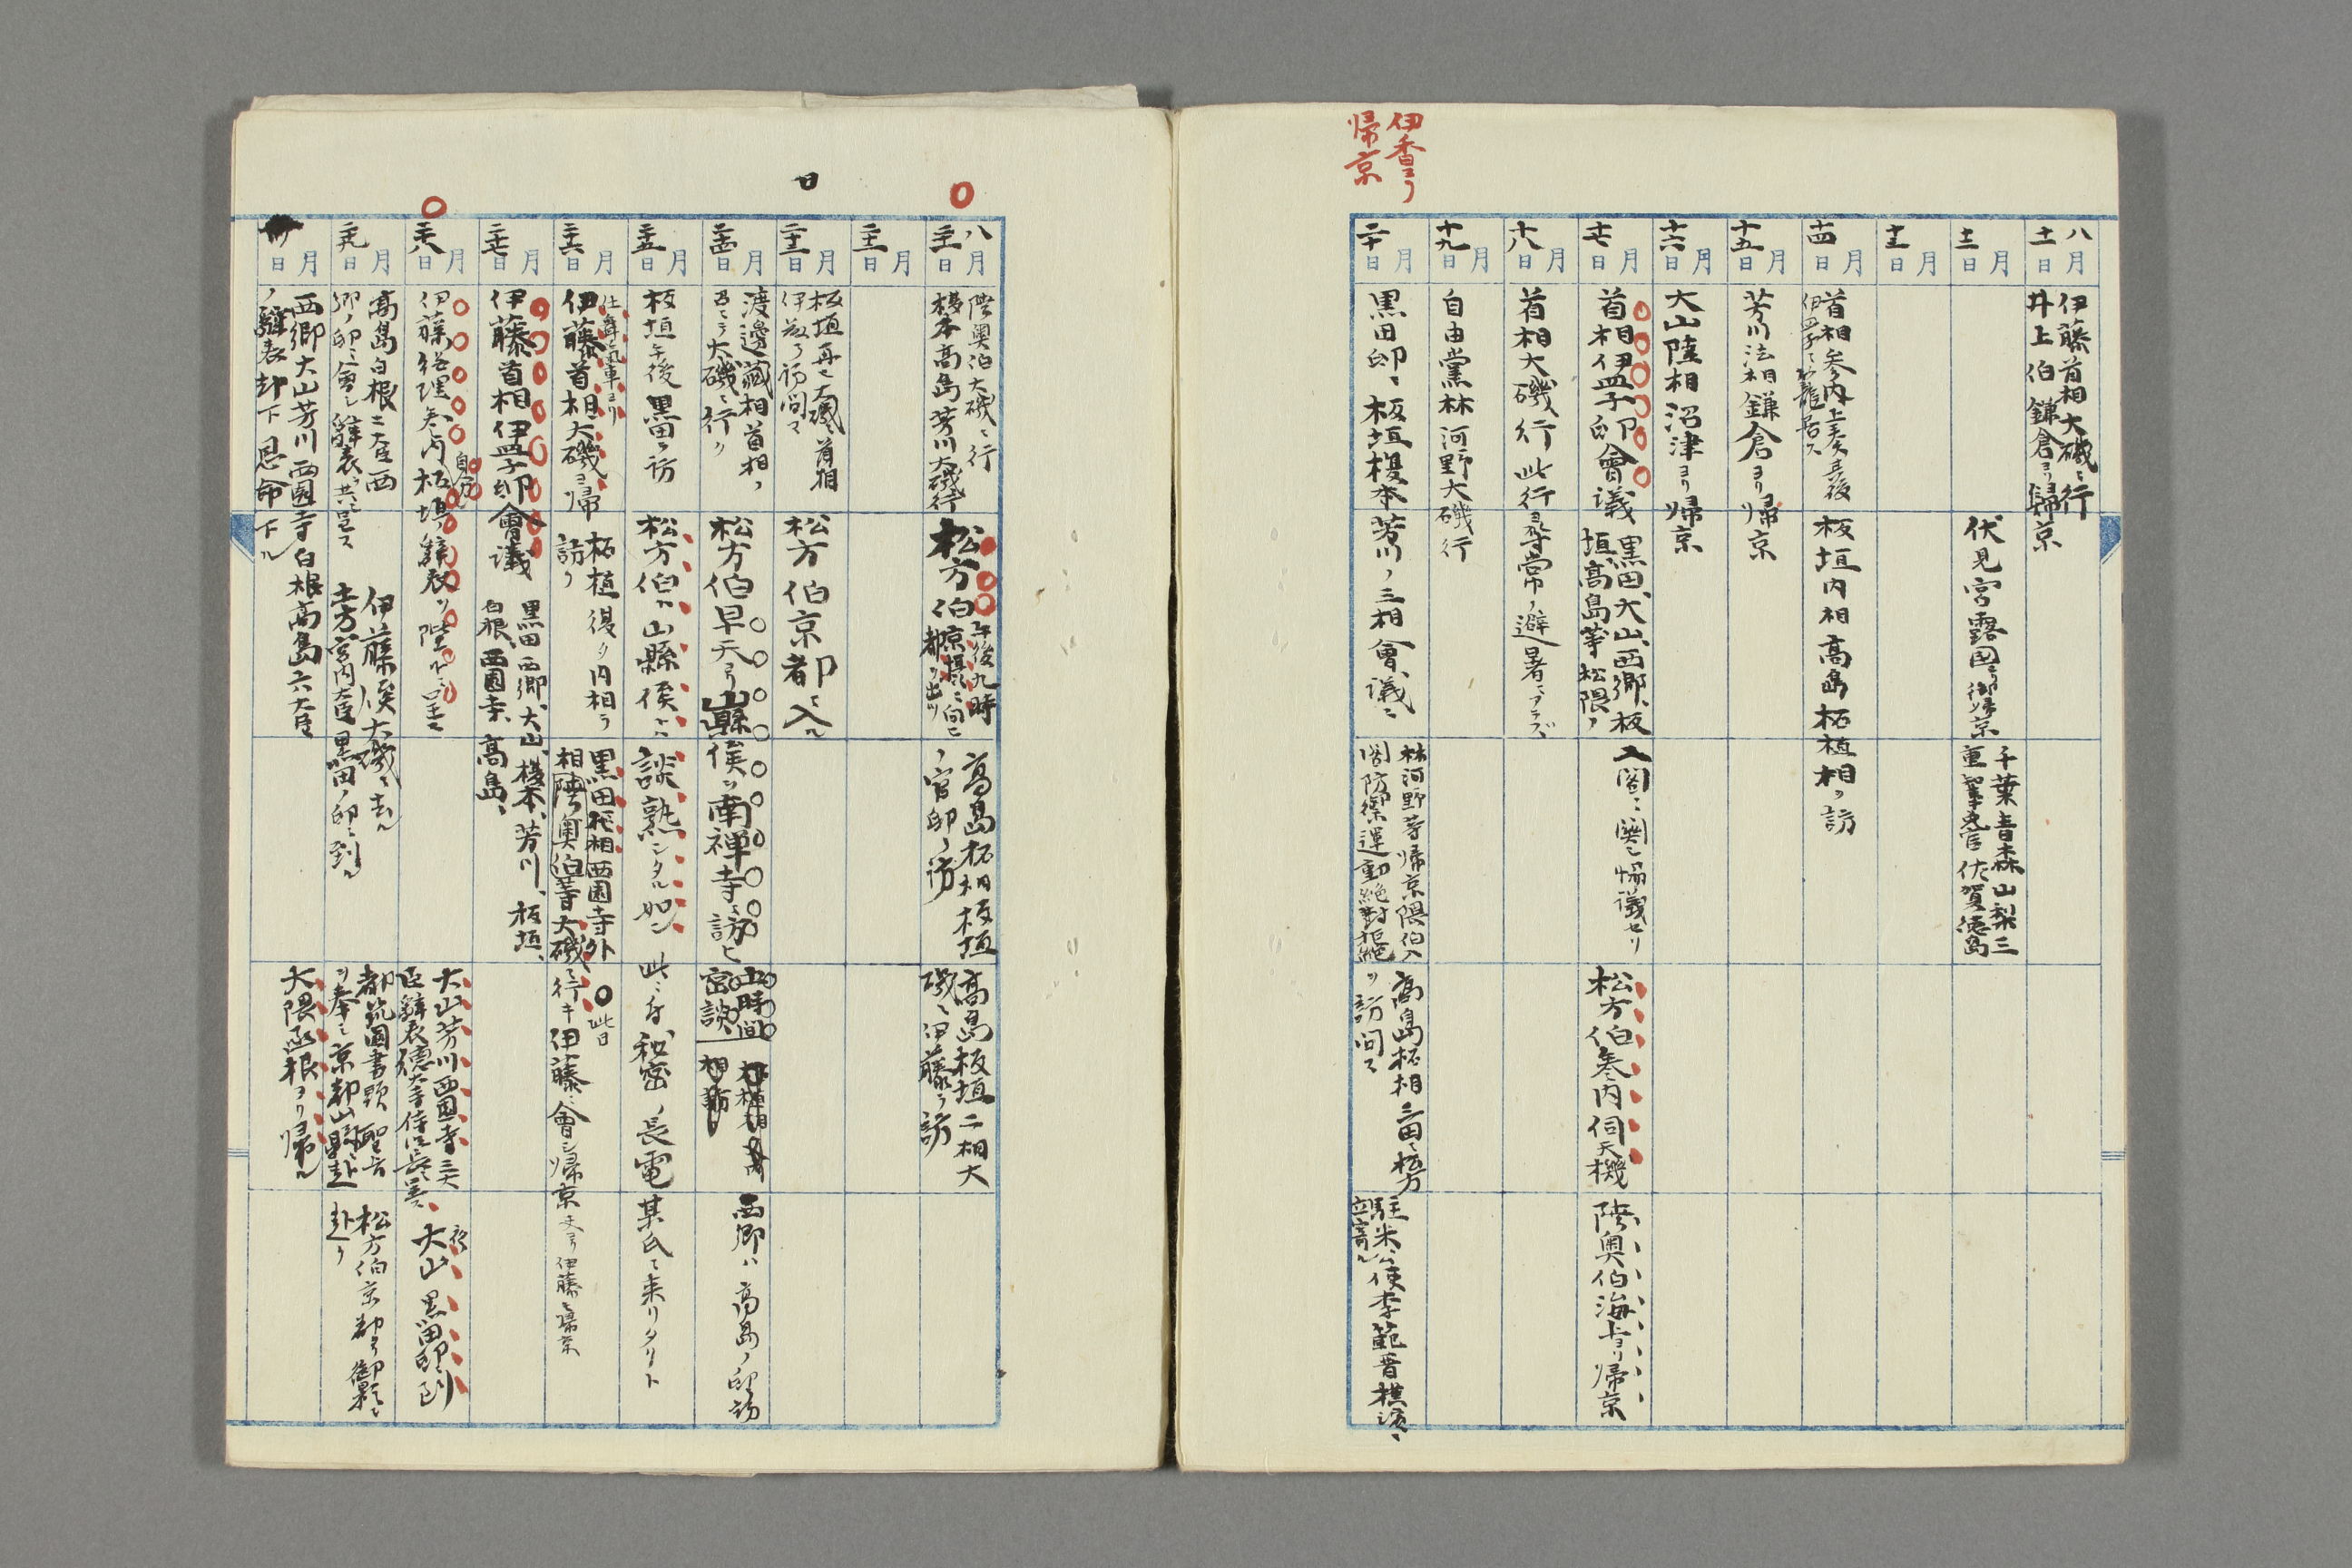 伊香ヨリ
帰京
八月
十一日
伊藤首相大磯ニ行
井上伯鎌倉ヨリ歸京
月
十二日
伏見宮露國ヨリ御帰京
千葉青森山梨三
重 佐賀徳島
月
十三日
月
十四日
首相参内上奏
板垣内相高島拓植相ヲ訪
月
十五日
芳川法相鎌倉ヨリ帰京
月
十六日
大山陸相沼津ヨリ帰京
月
十七日
首相伊皿子邸會議
黒田、大山、西郷、板
垣高島等松隈ノ
入閣ニ関シ協議セリ
松方伯参内伺天機
陸奥伯海 ヨリ帰京
月
十八日
首相大磯行此行ヨ尋常ノ避暑ニアラズ
月
十九日
自由黨林河野大磯行
月
二十日
黒田邸ニ板垣榎本芳川ノ三相會議ニ
林河野等帰京隈伯入
閣防禦運動絶對拒絶
高島拓相三田ニ松方
ヲ訪問ス
駐米公使李範晋横濱ニ
立寄ル
八月
二十一日
陸奥伯大磯ニ行
榎本高島芳川大磯行
松方伯
午後九時
京摂ニ向ヒ
都ヲ出ツ
高島拓相板垣
ノ官邸ヲ訪
高島板垣二相大
磯ニ伊藤ヲ訪
月
二十二日
日
月
二十三日
板垣再ヒ大磯ニ首相
伊藤ヲ訪問ス
松方伯京都ニ入ル
月
二十四日
渡邊蔵相首相ヲ
大磯ニ行ク
松方伯早天ヨリ山縣侯ヲ南禅寺ニ訪ヒ
五時間
密談
西郷ハ高島ノ邸訪
月
二十五日
板垣午後黒田ヲ訪
松方伯ハ山縣侯ト談熟シタル如シ
此ニ付秘密ノ長電某氏ニ来リタリト
月
二十六日
仕舞汽車ヨリ
伊藤首相大磯ヨリ帰
拓植復タ内相ヲ
訪フ
黒田拓相西園寺外
相陸奥伯等大磯ニ行キ伊藤ニ會シ帰京
此日
伊藤ト帰京
月
二十七日
伊藤首相伊皿子邸會議
黒田西郷、大山、榎本、芳川、板垣、
白根、西園寺、高島、
月
二十八日
伊藤総理参内板垣ノ辞表ヲ陛下ニ呈ス
大山芳川西園寺三大
臣辞表徳大寺侍従長ニ呈ス
夜
大山黒田邸ニ到
月
二十九日
高島白根二大臣西
郷ノ邸ニ會シ辞表ヲ共ニ呈ス
伊藤侯大磯ニ去ル
土方宮内大臣黒田ノ邸ニ到ル
都筑圖書頭聖旨
ヲ奉シ京都山縣ニ赴ク
松方伯京都ヨリ御影ニ
赴ク
月
日
西郷大山芳川西園寺白根高島六大臣
ノ辭表却下恩命下ル
大隈函根ヨリ帰ル